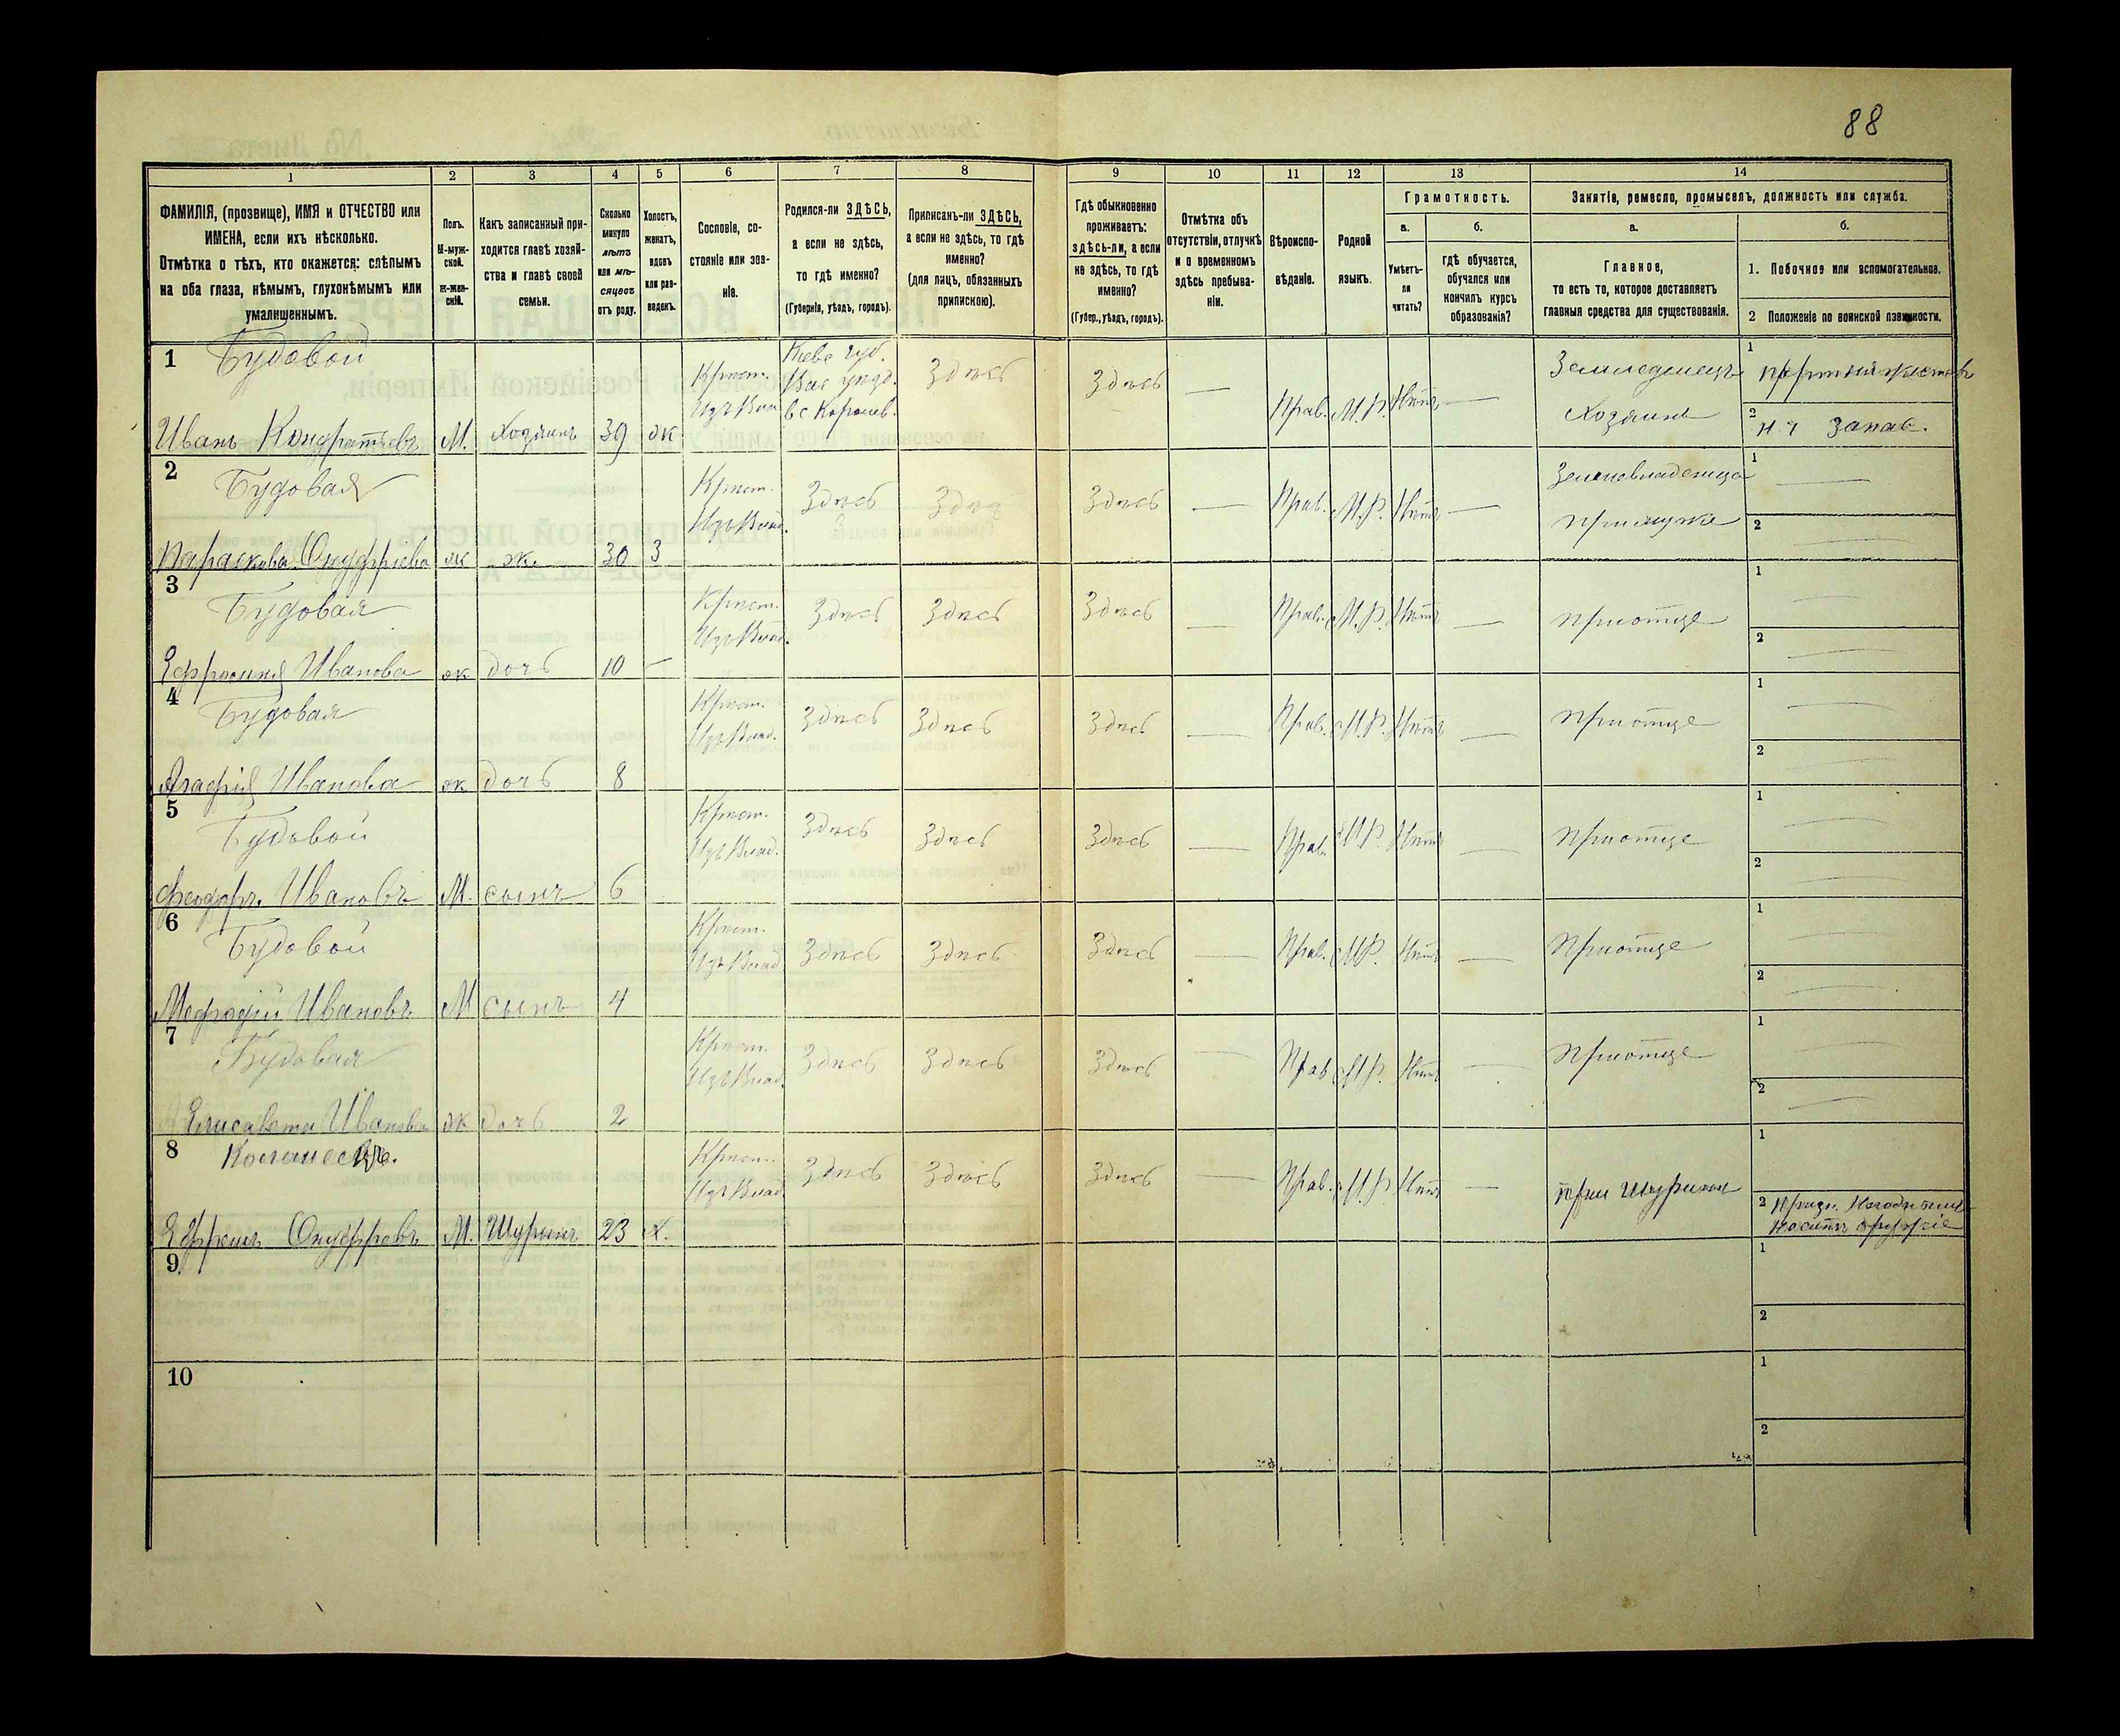 88
1 2 3 4 5 6 7 8 9 10 11 12 13 14
ФАМИЛІЯ, (прозвище), ИМЯ и ОТЧЕСТВО или
ИМЕНА, если ихъ нѣсколько.
Отмѣтка о тѣхъ, кто окажется: слѣпымъ
на оба глаза, нѣмымъ, глухонѣмымъ или
умалишеннымъ.
Полъ.
М-муж-
ской.
ж-жен-
скій.
Какъ записанный при-
ходится главѣ хозяй-
ства и главѣ своей
семьи.
Сколько
минуло
лѣтъ
или мѣ-
сяцевъ
отъ роду.
Холостъ,
женатъ,
вдовъ
или раз-
веденъ.
Сословіе, со-
стояніе или зва-
ніе.
Родился-ли ЗДѢСЬ,
а если не здѣсь,
то гдѣ именно?
(Губернія, уѣздъ, городъ).
Приписанъ-ли ЗДѢСЬ,
а если не здѣсь, то гдѣ
именно?
(для лицъ, обязанныхъ
припискою).
Гдѣ обыкновенно
проживаетъ:
здѣсь-ли, а если
не здѣсь, то гдѣ
именно?
(Губер., уѣздъ, городъ).
Отмѣтка объ
отсутствіи, отлучкѣ
и о временномъ
здѣсь пребыва-
ніи.
Вѣроиспо-
вѣданіе.
Родной
языкъ.
Грамотность.
а.
Умѣетъ-
ли
читать?
б.
гдѣ обучается,
обучался или
кончилъ курсъ
образованія?
Занятіе, ремесло, промыселъ, должность или служба.
а.
Главное,
то есть то, которое доставляетъ
главныя средства для существованія.
б.
1. Побочное или вспомогательное.
2 Положеніе по воинской повинности.
1 Будовой
Крест. Кіевс губ. Здѣсь Здѣсь — Прав. М.Р. Нѣтъ — Земледѣлецъ 1
Изъ Влад. Вас уѣзд.
в с.
Хозяинъ 2 Запас.
Иванъ Кондратьевъ М. Хозяинъ 39 ж
2 Будовая
Крест. Здѣсь Здѣсь Здѣсь — Прав. М.Р. Нѣтъ — 1 —
Изъ Влад. При мужѣ 2 —
Параскева Онуфріева ж ж. 30 З
3 Будовая
Крест. Здѣсь Здѣсь Здѣсь — Прав. М.Р. Нѣтъ — При отцѣ 1 —
Изъ Влад. 2 —
Ефросинія Иванова ж дочь 10 —
4 Будовая
Крест. Здѣсь Здѣсь Здѣсь — Прав. М.Р. Нѣтъ — При отцѣ 1 —
Изъ Влад. 2 —
Агафія Иванова ж дочь 8
5 Будовой
Крест. Здѣсь Здѣсь Здѣсь — Прав. М.Р. Нѣтъ — При отцѣ 1 —
Изъ Влад. 2 —
Феодоръ Ивановъ М. сынъ 6
6 Будовой
Крест. Здѣсь Здѣсь Здѣсь — Прав. М.Р. Нѣтъ — При отцѣ 1 —
Изъ Влад 2 —
Мефодій Ивановъ М сынъ 4
7 Будовая
Крест. Здѣсь Здѣсь Здѣсь — Прав М.Р. Нѣтъ — При отцѣ 1 —
Изъ Влад. 2 —
Елисавета Иванова ж дочь 2
8
Крест. Здѣсь Здѣсь Здѣсь — Прав. М.Р. Нѣтъ — При Шуринѣ 1
Изъ Влад 2 носить оружіе
Ефремъ Онуфріевъ М. Шуринъ 23 х.
9 1
2
10 1
2